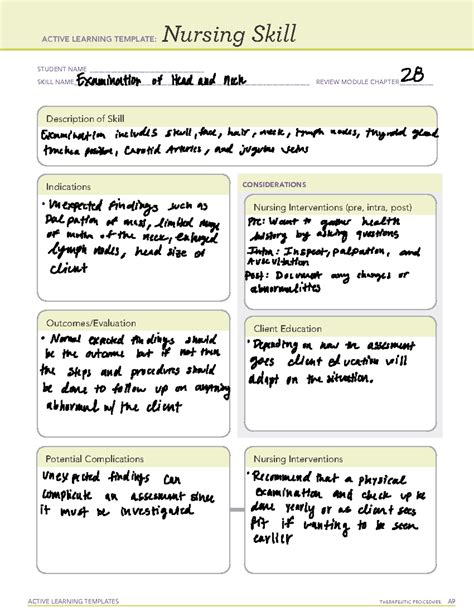 ACTIVE LEARNING TEMPLATE: Nursing Skill
STUDENT NAME
SKILL NAME Examination of Head and Neck REVIEW MODULE CHAPTER 28
Description of Skill
Examination includes skull, face, hair, neck, lymph nodes, thyroid gland
trachea position, Carotid Arteries, and jugular veins
Indications
• Unexpected findings such as
Palpation of mass, limited range
of motion of the neck, enlarged
lymph nodes, head size of
client
CONSIDERATIONS
Nursing Interventions (pre, intra, post)
Pre: Want to gather health
history by asking questions
Intra: Inspect, palpation, and
Auscultation
Post: Document any changes or
abnormalities
Outcomes/Evaluation
• Normal expected findings should
be the outcome but if not then
the steps and procedures should
be done to follow up on anything
abnormal w/ the client
Client Education
• Depending on how the assessment
goes client education will
adapt on the situation.
Potential Complications
Unexpected findings can
complicate an assessment since
it must be investigated
Nursing Interventions
• Recommend that a physical
examination and check up be
done yearly or as client sees
fit if wanting to be seen
earlier
ACTIVE LEARNING TEMPLATES THERAPEUTIC PROCEDURE A9